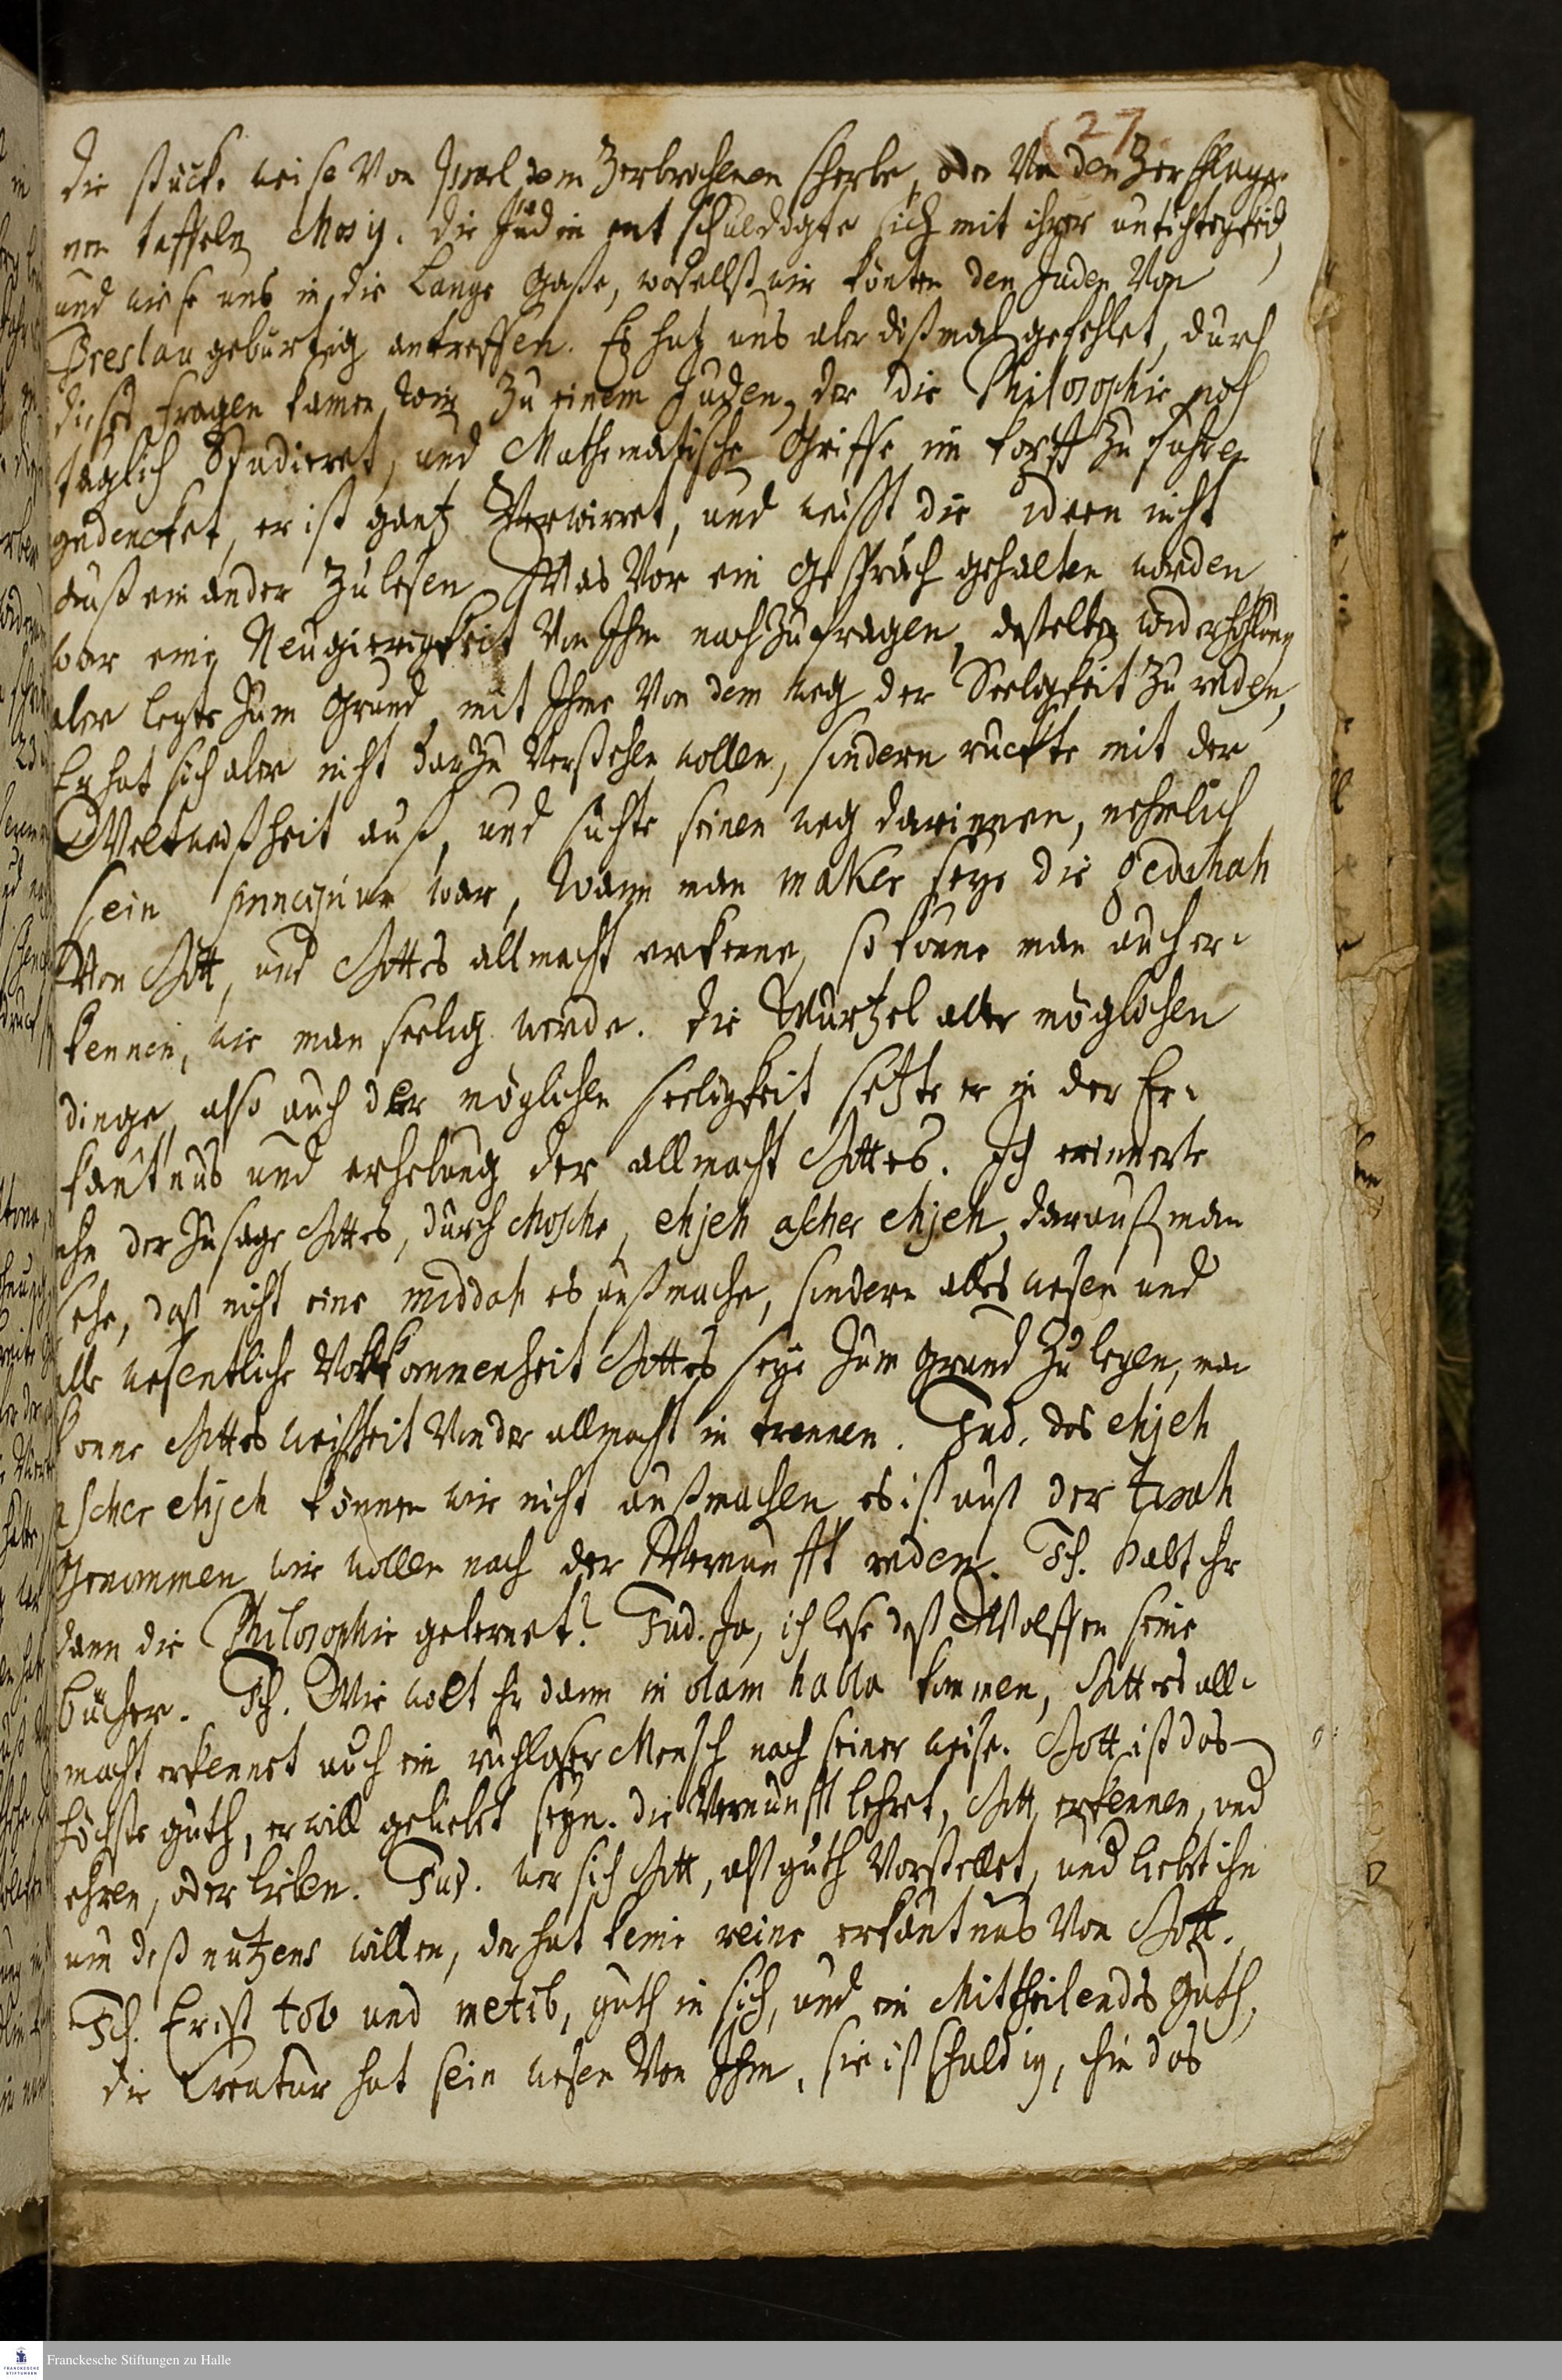 (27.
die stücke weise Von Israel dem Zerbrochenen scherbe, oder Von den Zerschlage-
nen taffeln Mosis. die Jüdin entschuldigte sich mit ihrer untichtigkeid,
und wiese uns in die Lange Gaße, woselbst wir könten den Juden Von
Breslau gebürtig antreffen. Es hatz uns aber dißmal gefehlet, durch
dieses fragen kamen wir zu einem Juden, der die Philosophie noch
täglich Studieret, und Mathematische Griffe im kopff zu führen
gedencket, er ist gantz Verwirret, und weisst die ideen nicht
auß einander zu lesen. Was Vor ein Gespräch gehalten worden,
war eine Neugierigkeit Von Ihm nach zu fragen, deßelben widerhohlung
aber legte zum Grund, mit Ihme Von dem weg der Seeligkeit zu reden,
Er hat sich aber nicht darzu Verstehen wollen, sondern rückte mit der
Weltweißheit auß, und suchte seinen weg darinnen, nehmlich
sein principium war, wann man maker seye die gedulah
Von Gott, und Gottes allmacht erkenne, so könne man auch er-
kennen, wie man seelig werde. die Wurtzel aller möglichen
dinge, also auch der möglichen seeligkeit setzte er in der Er-
kantnus und erhebung der allmacht Gottes. Ich erinnerte
ihn der Zusage Gottes, durch Mosche, ehjeh ascher ehjeh, darauß man
sehe, daß nicht eine middah es außmache, sondern alles wesen und
alle wesentliche Vollkommenheit Gottes seye zum grund zu legen, man
könne Gottes weißheit Von der allmacht nie trennen. Jud. das ehjeh
ascher ehjeh können wir nicht außmachen, es ist auß der torah
genommen, wir wollen nach der Vernunfft reden. Ich. habt ihr
dann die Philosophie gelernet? Jud. Ja, ich lese deß Wolffen seine
bücher. Ich. Wie wolt Ihr dann in olam habba kommen, Gottes all-
macht erkennet auch ein ruchloser Mensch nach seiner weise. Gott ist das
höchste guth, er will geliebet seyn. die Vernunfft lehret, Gott erkennen, und
ehren, oder lieben. Jud. wer sich Gott, alß guth Vorstellet, und liebet ihn
um deß nutzens willen, der hat keine reine erkäntnus Von Gott.
Ich. Er ist tob und metib, guth in sich, und ein Mittheilendes Guth,
die Creatur hat sein wesen Von Ihm, sie ist schuldig, ihn das
Franckesche Stiftungen zu Halle